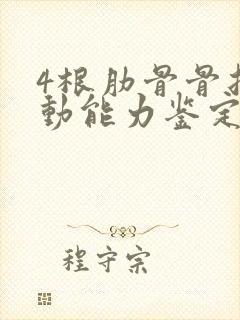 4根肋骨骨
动能力鉴定
程守宗